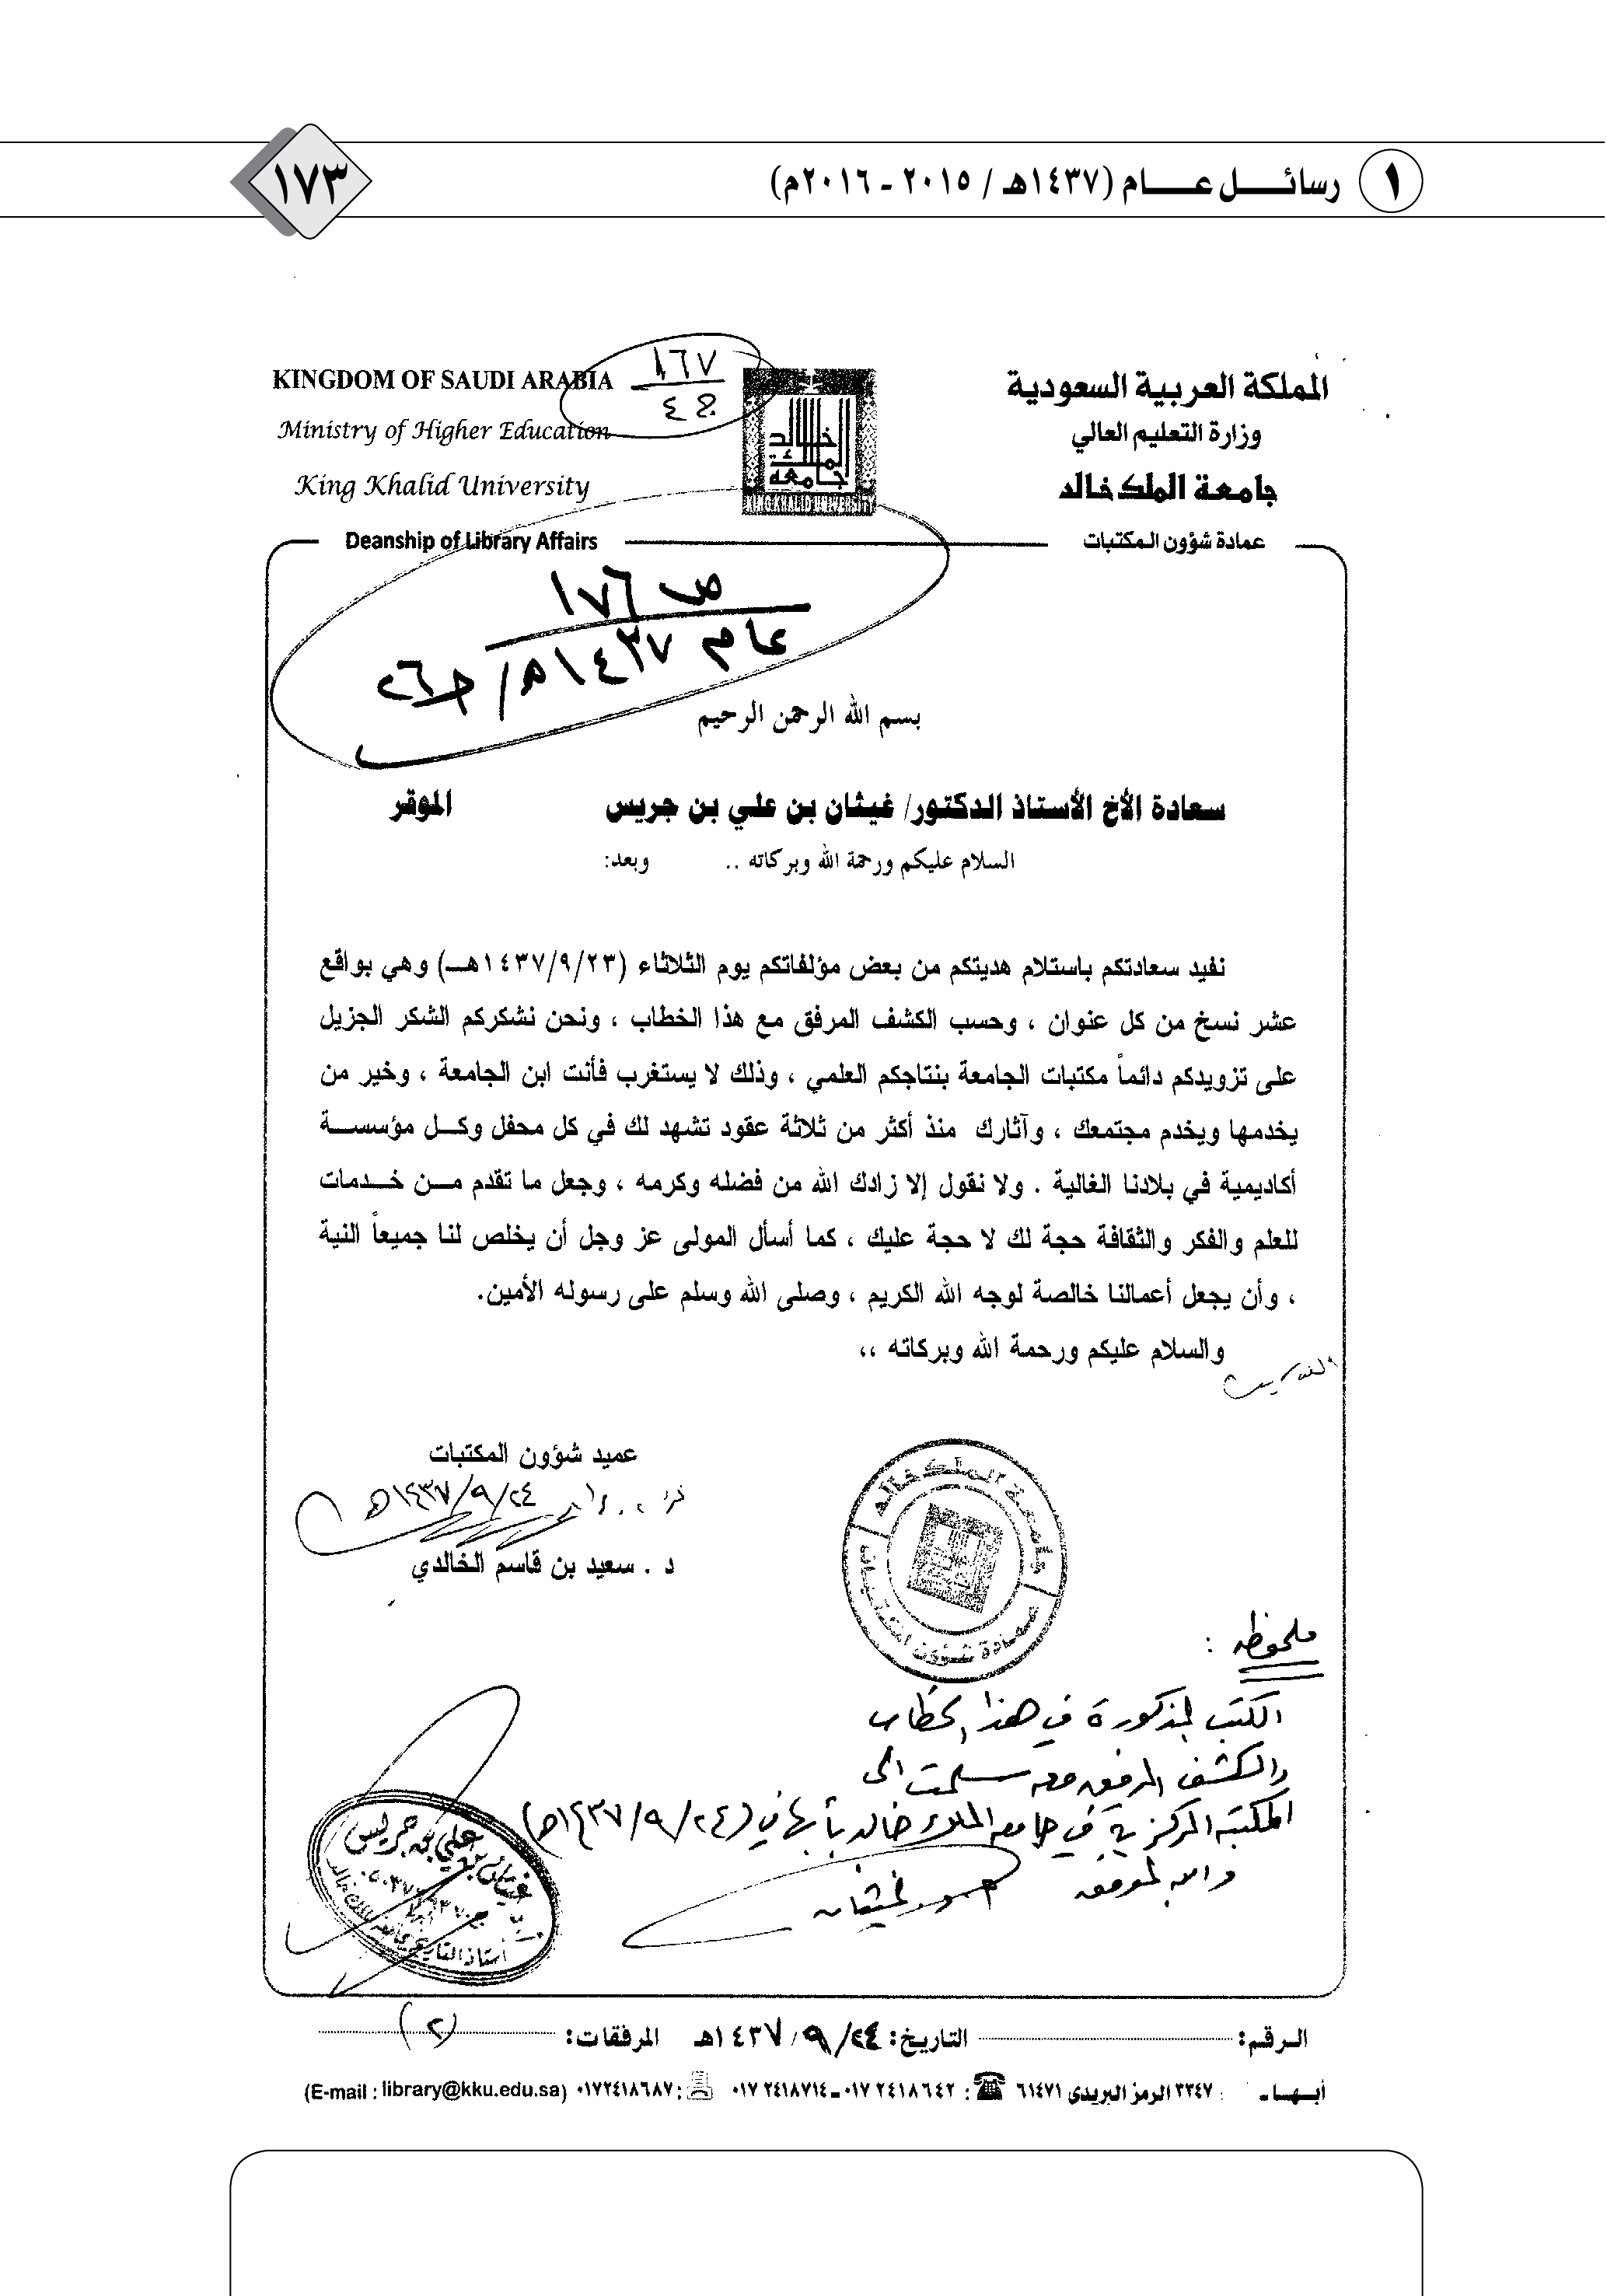 ١ رسائــــل عـــــام (١٤٣٧هـ / ٢٠١٥ - ٢٠١٦م)
١٧٣
KINGDOM OF SAUDI ARABIA
Ministry of Higher Education
King Khalid University
Deanship of Library Affairs
١٦٧
ج ٤
خالد
الملك
جامعة
KING KHALID UNIVERSITY
المملكة العربية السعودية
وزارة التعليم العالي
جامعة الملك خالد
عمادة شؤون المكتبات
ص ١٧٦
عام ١٤٣٧هـ / ج٢٦
بسم الله الرحمن الرحيم
سعادة الأخ الأستاذ الدكتور/ غيثان بن علي بن جريس الموقر
السلام عليكم ورحمة الله وبركاته .. وبعد:
نفيد سعادتكم باستلام هديتكم من بعض مؤلفاتكم يوم الثلاثاء (١٤٣٧/٩/٢٣هـ) وهي بواقع
عشر نسخ من كل عنوان ، وحسب الكشف المرفق مع هذا الخطاب ، ونحن نشكركم الشكر الجزيل
على تزويدكم دائماً مكتبات الجامعة بنتاجكم العلمي ، وذلك لا يستغرب فأنت ابن الجامعة ، وخير من
يخدمها ويخدم مجتمعك ، وآثارك منذ أكثر من ثلاثة عقود تشهد لك في كل محفل وكـل مؤسسـة
أكاديمية في بلادنا الغالية . ولا نقول إلا زادك الله من فضله وكرمه ، وجعل ما تقدم مـن خـدمات
للعلم والفكر والثقافة حجة لك لا حجة عليك ، كما أسأل المولى عز وجل أن يخلص لنا جميعاً النية
، وأن يجعل أعمالنا خالصة لوجه الله الكريم ، وصلى الله وسلم على رسوله الأمين.
والسلام عليكم ورحمة الله وبركاته ،،
عميد شؤون المكتبات
١٤٣٧/٩/٢٤هـ
د . سعيد بن قاسم الخالدي
جامعة الملك خالد
عمادة شؤون المكتبات
ملحوظة :
الكتب المذكورة في هذا الخطاب
والكشف المرفق معه سلمت إلى
المكتبة المركزية في جامعة الملك خالد بأبها في (١٤٣٧/٩/٢٤هـ)
والله الموفق
غيثان بن علي بن جريس
الـرقم: التاريخ: ١٤٣٧/٩/٢٤هـ المرفقات: (٢)
أبـهـا - : ٣٣٤٧ الرمز البريدي ٦١٤٧١ : ٠١٧ ٢٤١٨٦٤٢ - ٠١٧ ٢٤١٨٧١٤ : ٠١٧٢٤١٨٦٨٧ (E-mail : library@kku.edu.sa)